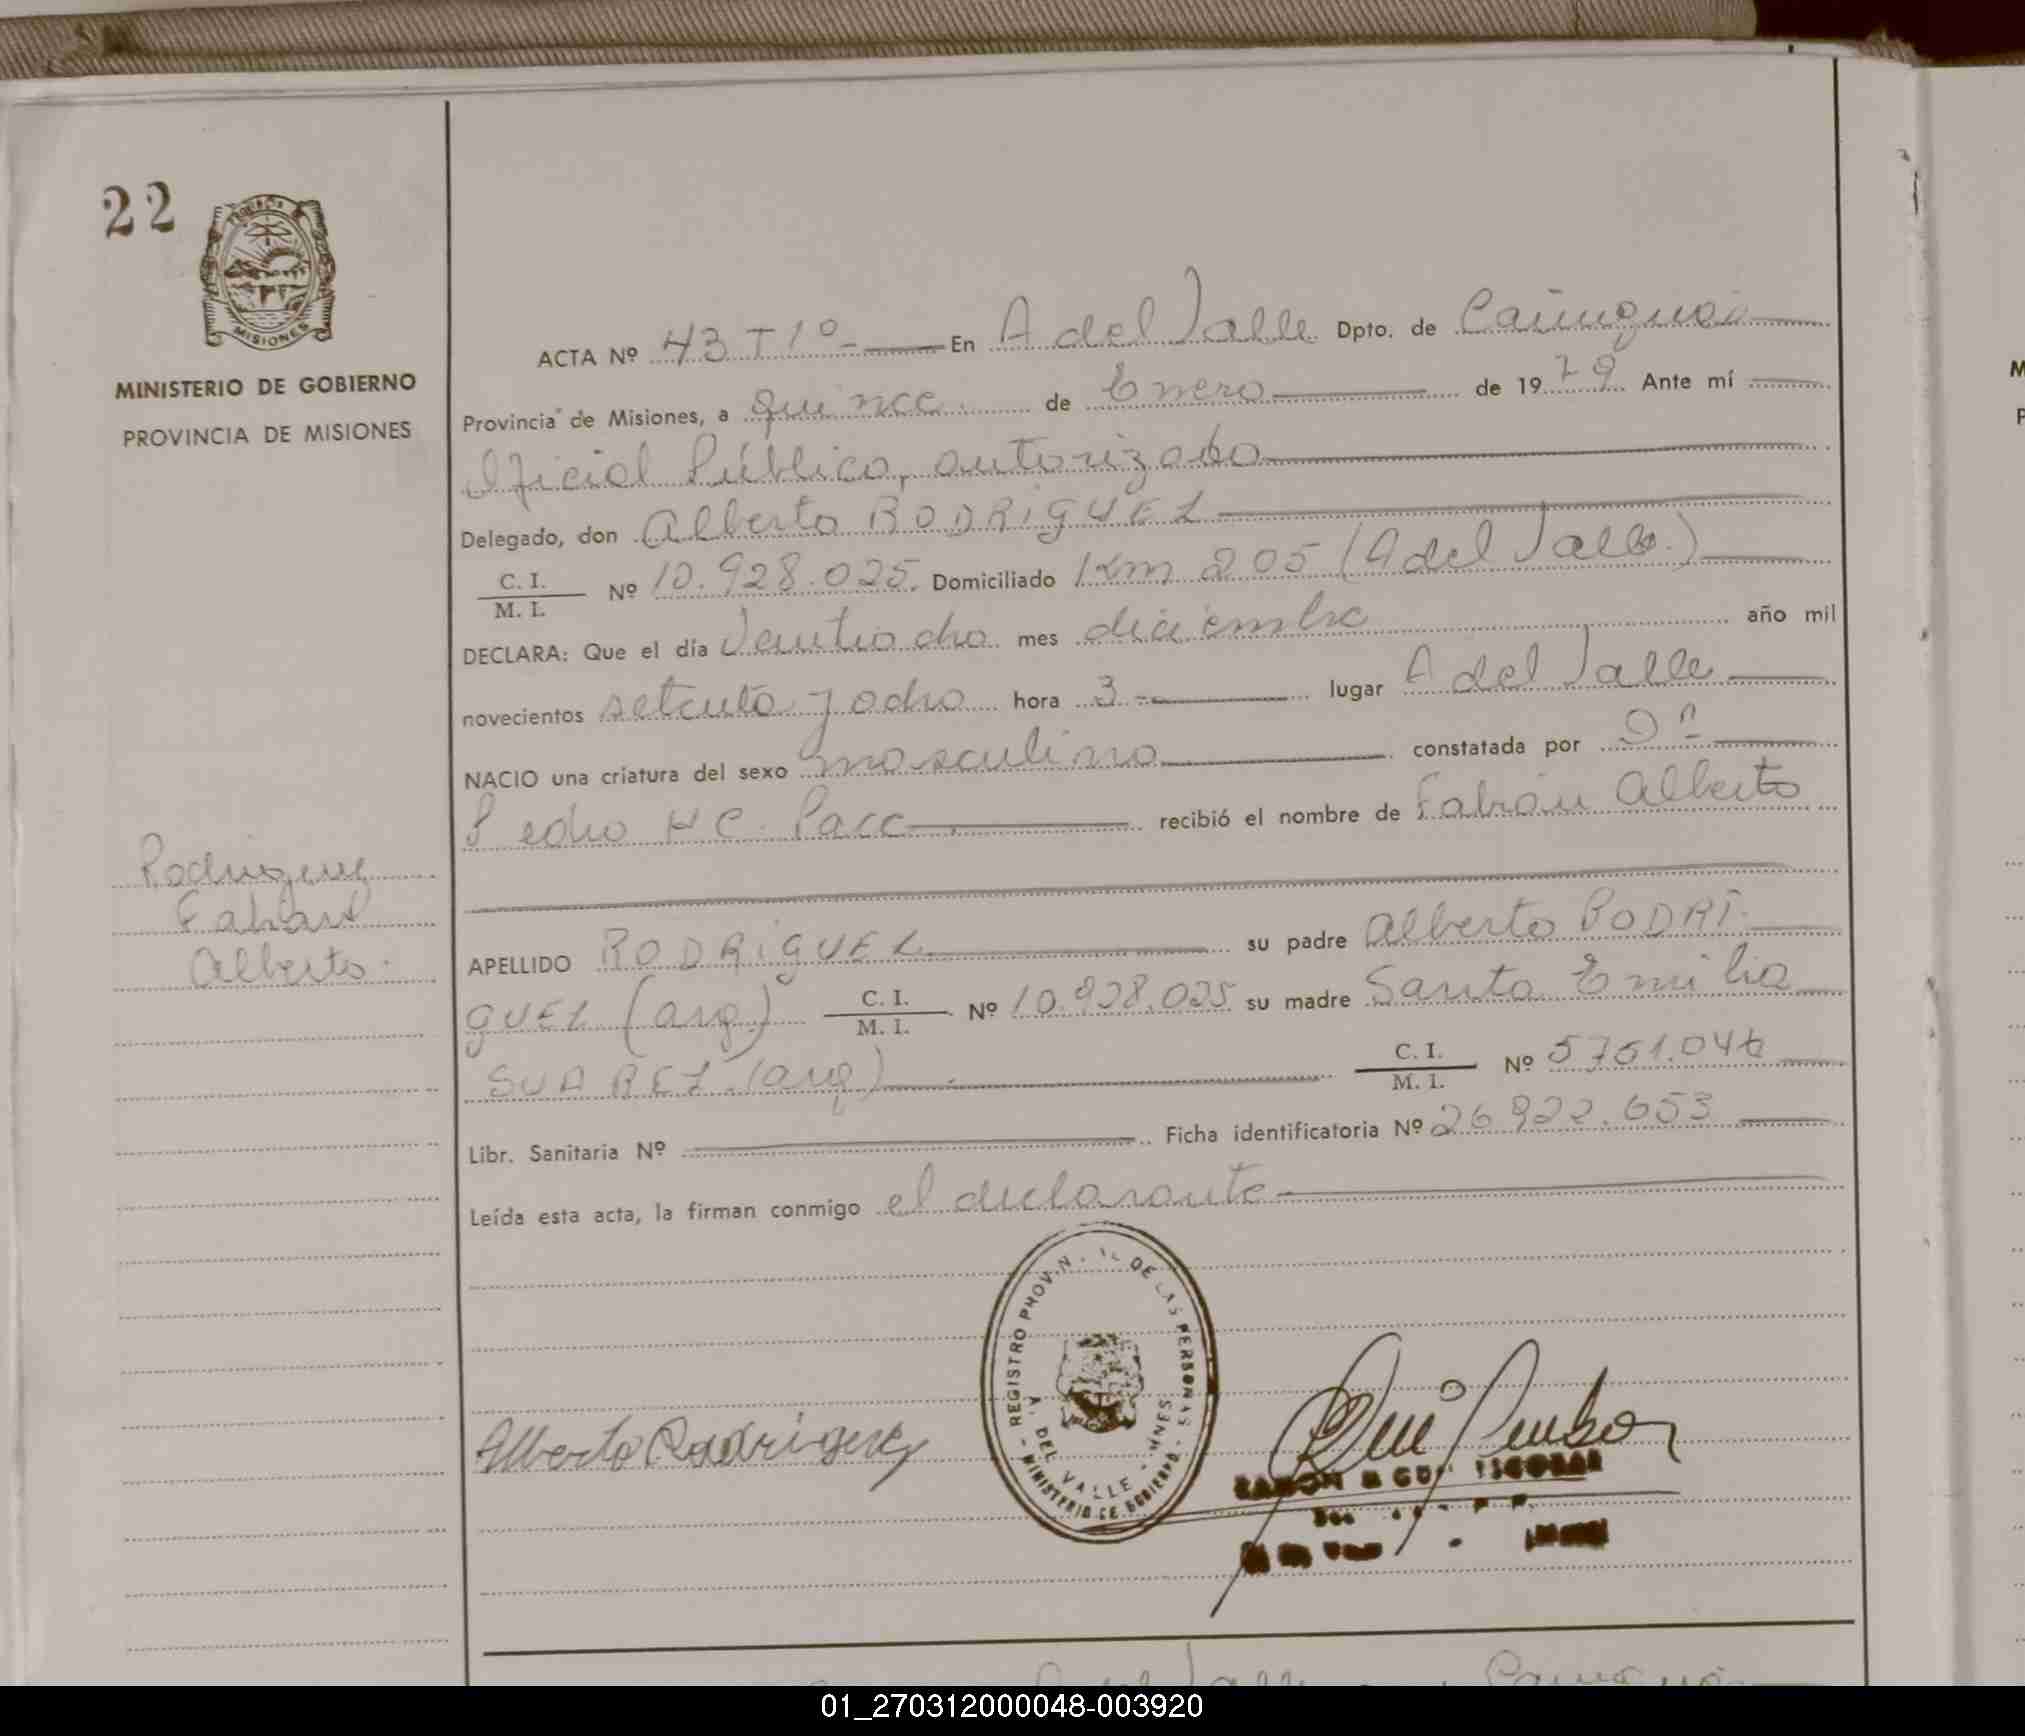 22
MISIONES
MINISTERIO DE GOBIERNO
PROVINCIA DE MISIONES
Rodriguez
Fabian
Alberto.
ACTA Nº 43 T 1º - En A del Valle Dpto. de Cainguás
Provincia de Misiones, a quince de Enero de 1979 Ante mí
Oficial Público, autorizado
Delegado, don Alberto RODRIGUEZ
C. I.
M. I.
Nº 10.928.025. Domiciliado Km 205 (A del Valle.)
DECLARA: Que el día Veintiocho mes diciembre año mil
novecientos setenta y ocho hora 3 lugar A del Valle
NACIO una criatura del sexo masculino constatada por
Pedro recibió el nombre de Fabián Alberto
APELLIDO RODRIGUEZ su padre Alberto RODRI-
GUEZ (arg.) C. I.
M. I.
Nº 10.928.025 su madre Santa Emilia
SUAREZ (arg) C. I.
M. I.
Nº 5761.046
Libr. Sanitaria Nº Ficha identificatoria Nº 26 922.653
Leída esta acta, la firman conmigo el declarante
Alberto Rodriguez
REGISTRO DE LAS PERSONAS
A. DEL VALLE - MNES
MINISTERIO DE GOBIERNO
RAMON ESCOBAR
01_270312000048-003920